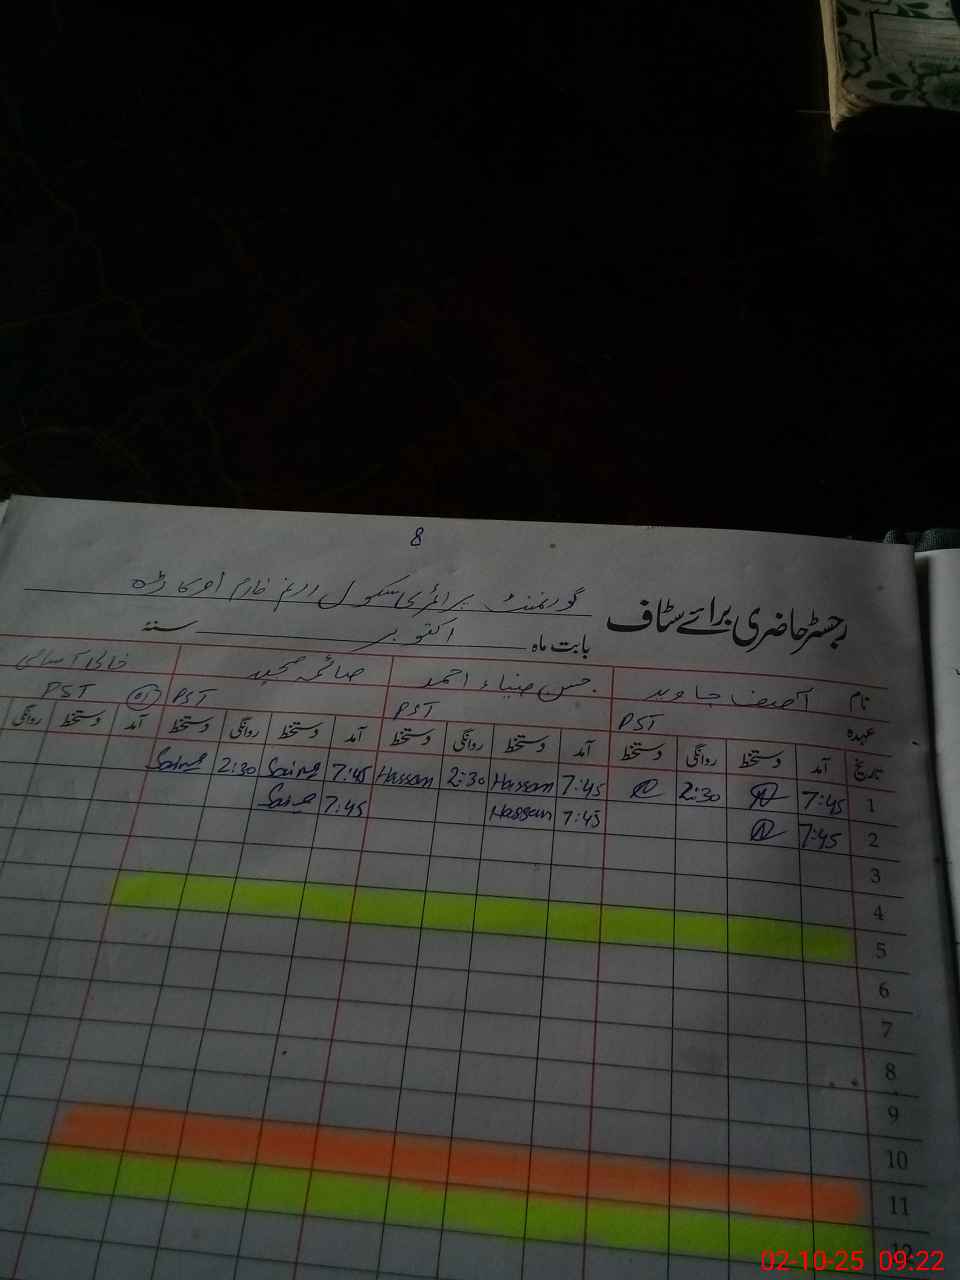 8
گورنمنٹ پرائمری سکول
رجسٹر حاضری برائے سٹاف
بابت ماہ اکتوبر سنہ
نام آصف جاوید حسن ضیاء احمد صائمہ مجید خالی آسامی
عہدہ PST PST PST PST
تاریخ آمد دستخط روانگی دستخط آمد دستخط روانگی دستخط آمد دستخط روانگی دستخط آمد دستخط روانگی
1 7:45 2:30 7:45 Hassan 2:30 Hassan 7:45 2:30
2 7:45 7:45 Hassan 7:45
3
4
5
6
7
8
9
10
11
12
02-10-25 09:22